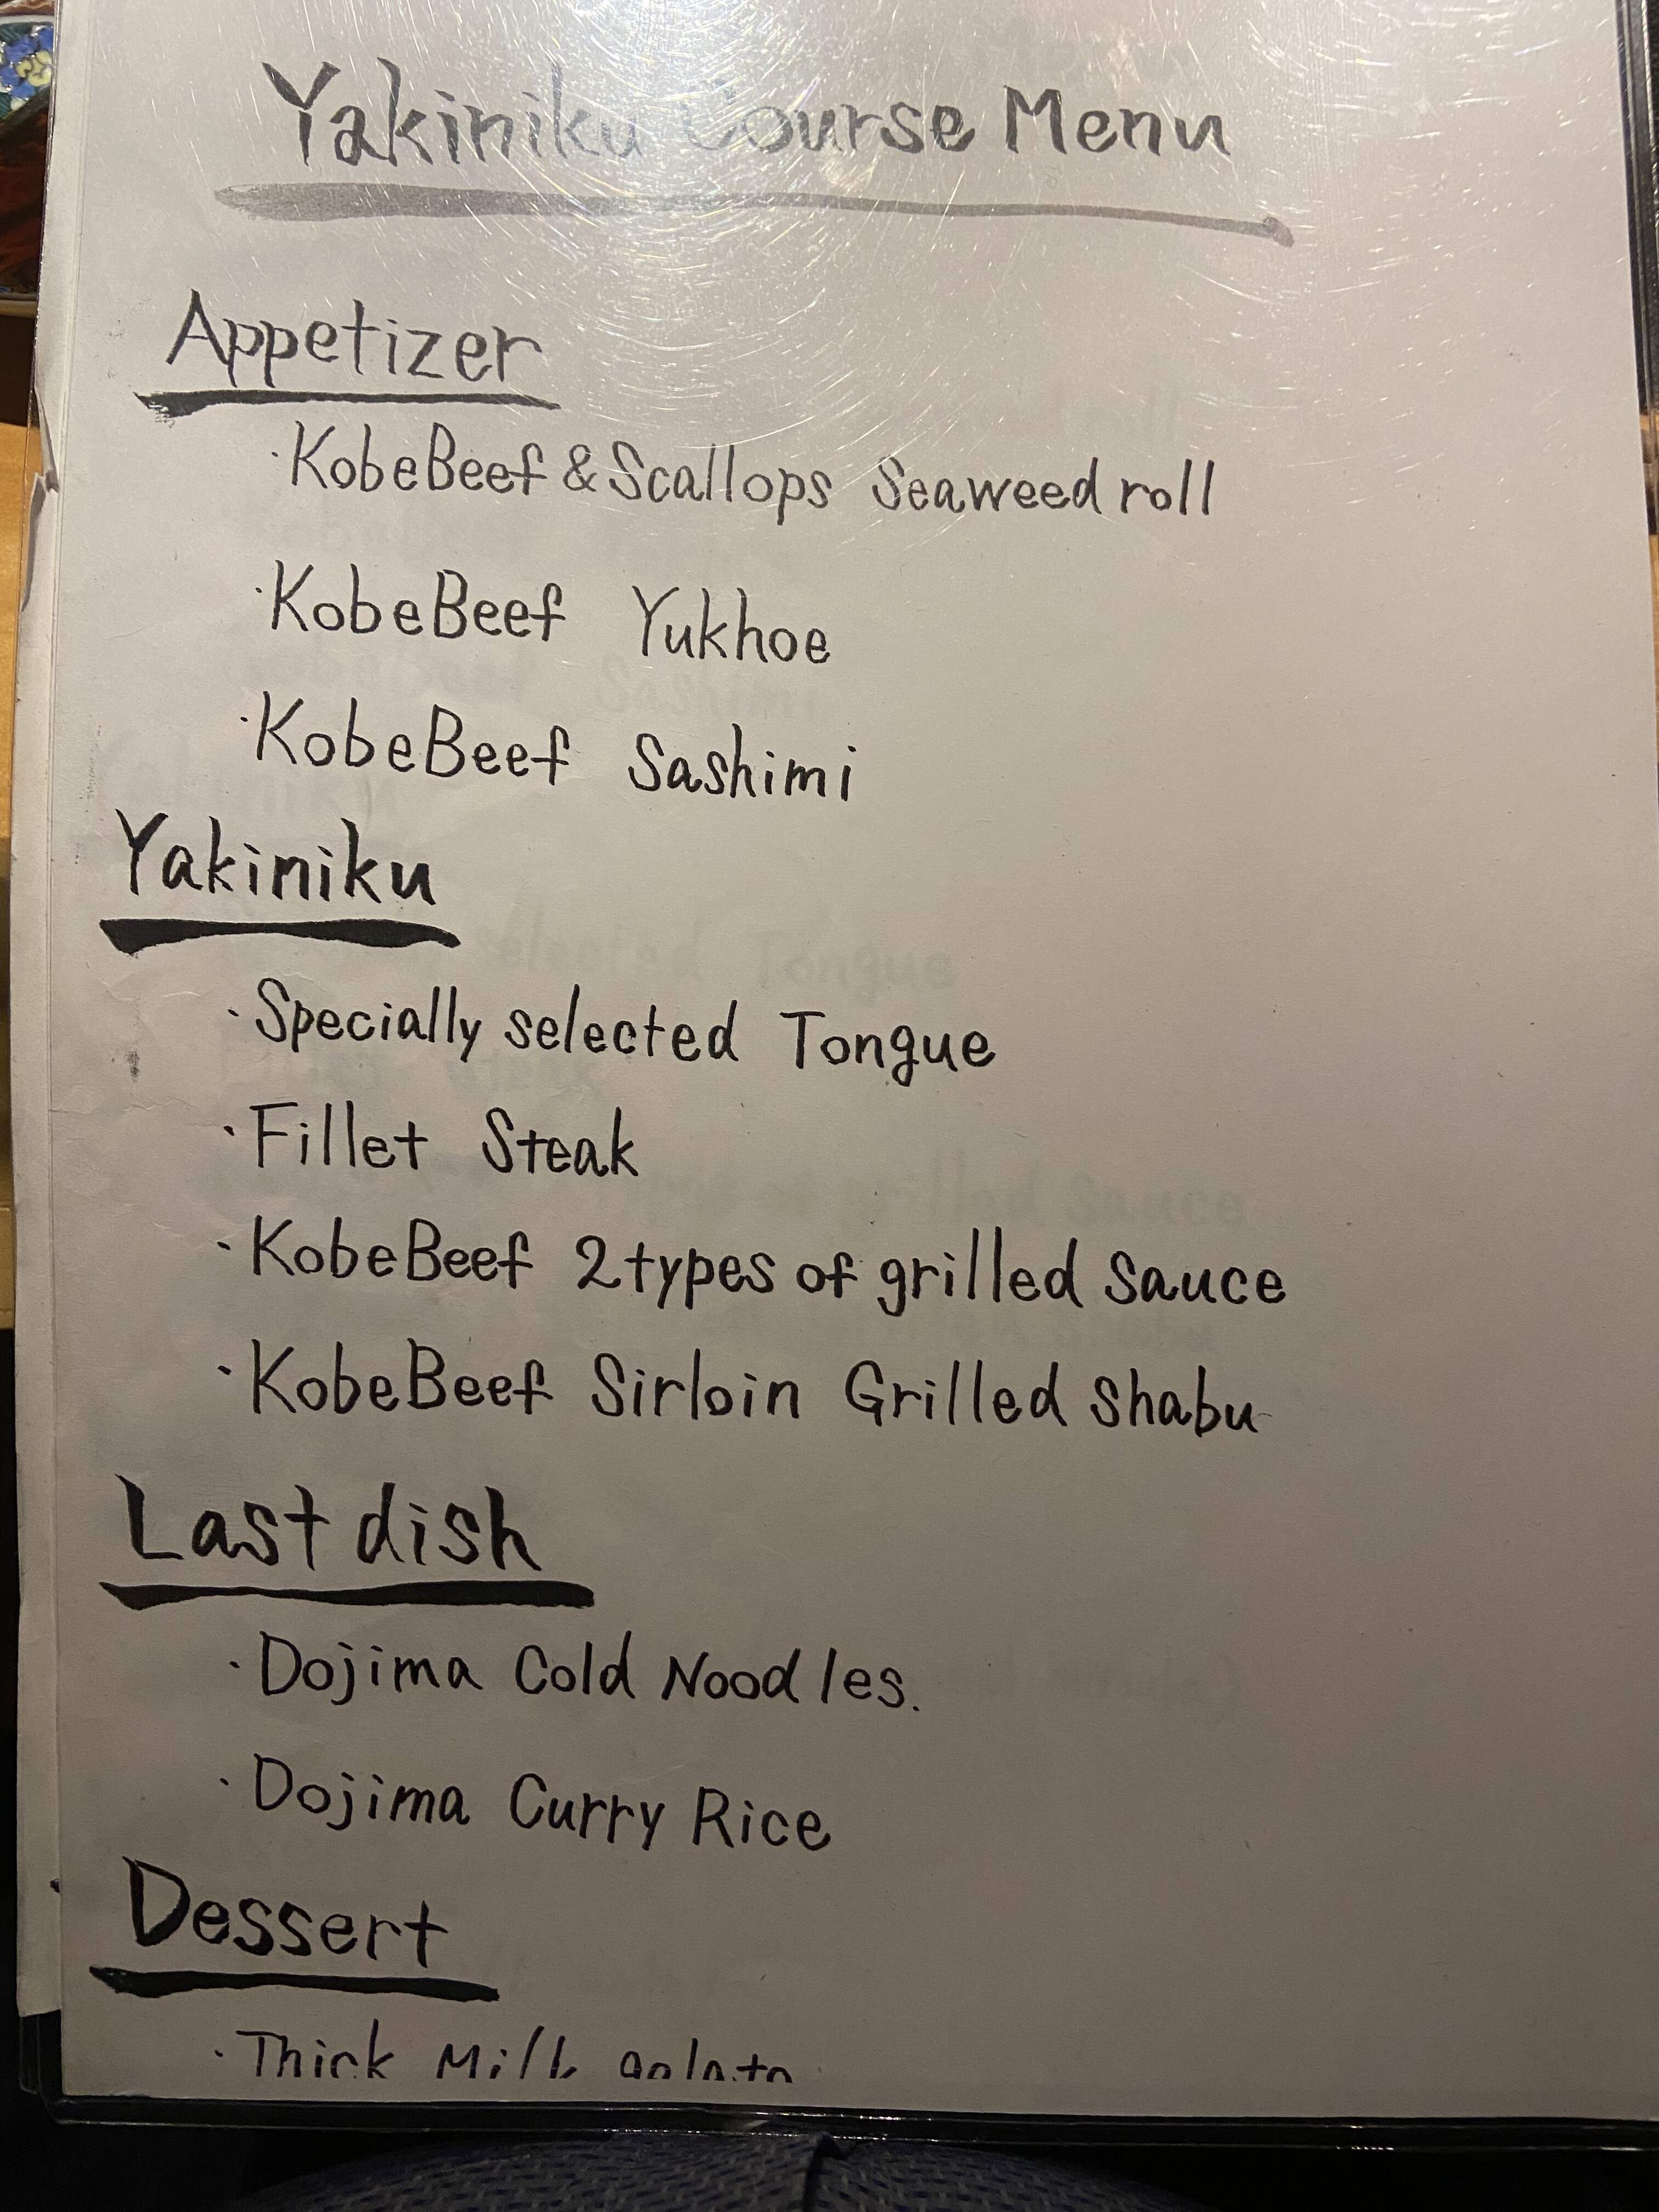 Yakiniku Course Menu
Appetizer
·KobeBeef & Scallops Seaweed roll
·KobeBeef Yukhoe
·KobeBeef Sashimi
Yakiniku
·Specially selected Tongue
·Fillet Steak
·KobeBeef 2 types of grilled sauce
·KobeBeef Sirloin Grilled shabu
Last dish
·Dojima Cold Noodles.
·Dojima Curry Rice
Dessert
·Thick Milk gelato